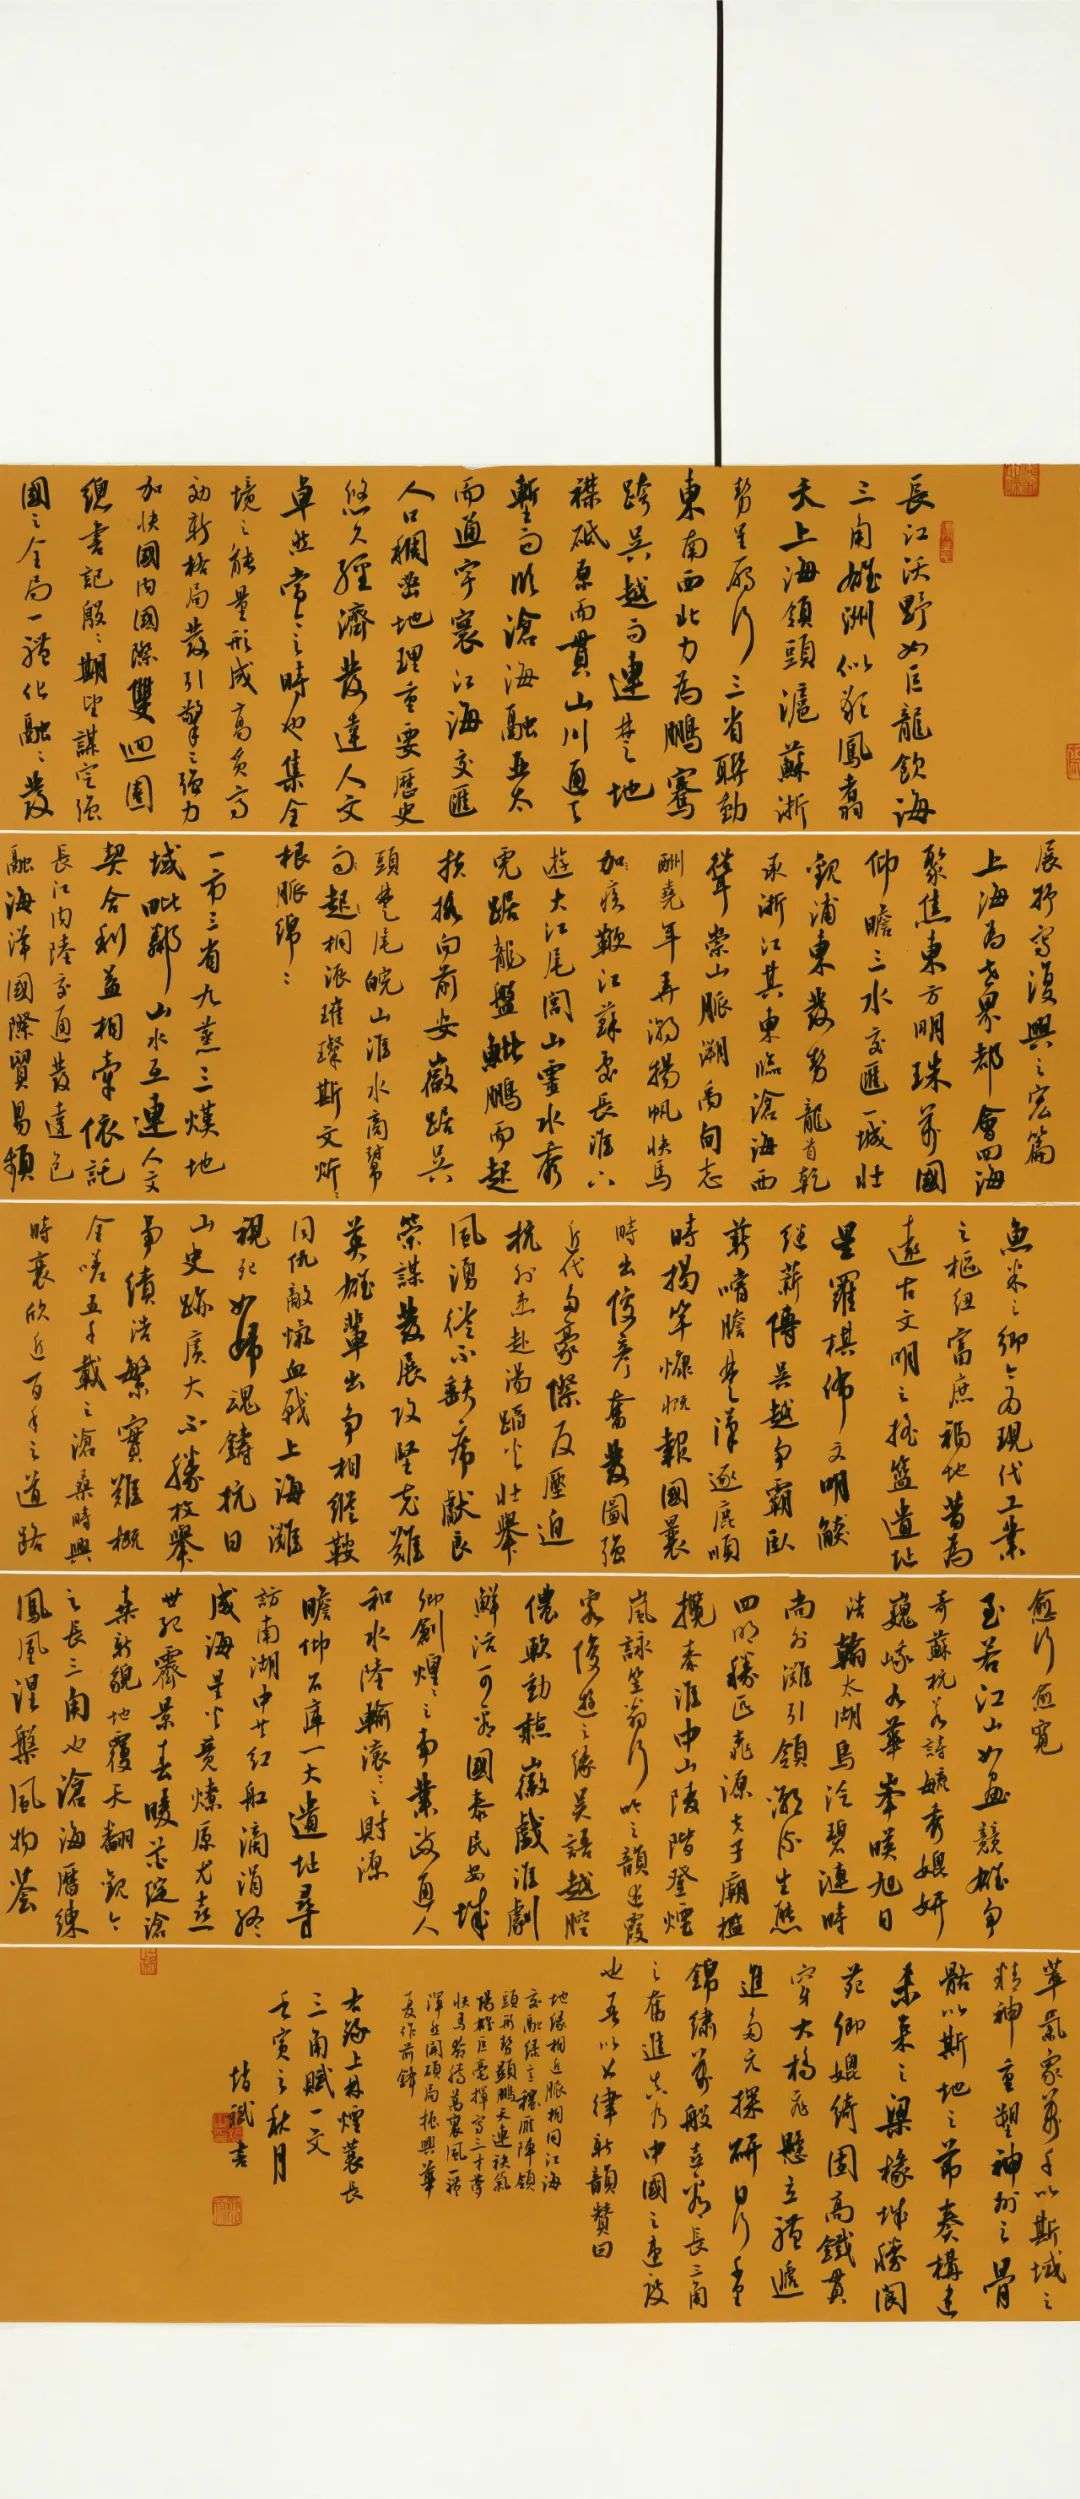 長江沃野如巨龍飲海
三角雄洲似彩鳳翥
天上海領頭滬蘇浙
勢呈雁行三省聯動
東南西北力為鵬騫
跨吳越而連楚地
襟砥原而貫山川通天
塹而收滄海融亞太
而通宇寰江海交匯
人口稠密地理重要歷史
悠久經濟發達人文
卓然當今之時也集全
境之能量形成高質高
效新格局發引擎之強力
加快國內國際雙迴圈
總書記殷殷期望謀定強
國之全局一體化融融發
展抒寫復興之宏篇
上海為世界都會四海
聚焦東方明珠萬國
仰瞻三水交匯一城壯
觀浦東發勢龍首乾
承浙江其東臨滄海西
聳崇山脈溯禹甸志
酬堯年弄潮揚帆快馬
加疾鞭江蘇委長淮六
遊大江尾閭山靈水秀
虎踞龍盤鯤鵬而起
扶搖向前安徽踞吳
頭楚尾皖山淮水商幫
而起桐派璀璨斯文炘炘
根脈綿綿
一市三省九燕三煥地
域毗鄰山水互連人文
契合利益相牽依託
長江內陸交通發達包
融海洋國際貿易頻
魚米之鄉今為現代工業
之樞紐富庶福地昔為
遠古文明之搖籃遺址
星羅棋佈文明賡
繼薪傳吳越爭霸臥
薪嚐膽楚漢逐鹿順
時揭竿慷慨報國曩
時出俊彥奮發圖強
近代多豪傑反壓迫
抗外患赴湯蹈火壯舉
風湧從不缺席獻良
策謀發展攻堅克難
英雄輩出爭相縱鞍
同仇敵愾血戰上海灘
視死如歸魂鑄抗日
山史跡廣大不勝枚舉
事績浩繁實難概
全嗟五千載之滄桑時興
時衰欣近百年之道路
愈行愈寬
至若江山如畫競雄爭
奇蘇杭若詩毓秀媲妍
巍峨九華峯暎旭日
浩瀚太湖鳥泛碧漣時
尚外灘引領潮流生態
四明勝匹桃源夫子廟檻
攬秦淮中山陵階登煙
嵐詠竺翁行吟之韻追霞
客俊遊之緣吳語越腔
儂軟動聽徽戲淮劇
鮮活可看國泰民安城
鄉創煌煌之事業政通人
和水陸輪滾滾之財源
瞻仰石庫一大遺址尋
訪南湖中共紅船涓涓終
成海星火竟燎原尤喜
世紀霽景春暖花綻滄
桑新貌地覆天翻觀今
之長三角也滄海曆練
鳳凰涅槃風物薈
萃氣象萬千以斯域之
精神重塑神州之骨
骼以斯地之節奏構建
未來之梁椽城勝閬
苑鄉媲綺園高鐵貫
穿大橋飛懸立體遞
進多元探研日行千里
錦繡萬般喜看長三角
之奮進真乃中國之建設
也吾以七律新韻贊曰
地緣相近脈相同江海
交融綠意穠雁陣領
頭形勢顥鵬天連袂氣
場雄巨毫揮寫三才夢
快馬前馳萬裏風一體
渾然開碩局振興華
夏作前鋒
右錄上林煙蓑長
三角賦一文
壬寅之秋月
增斌書